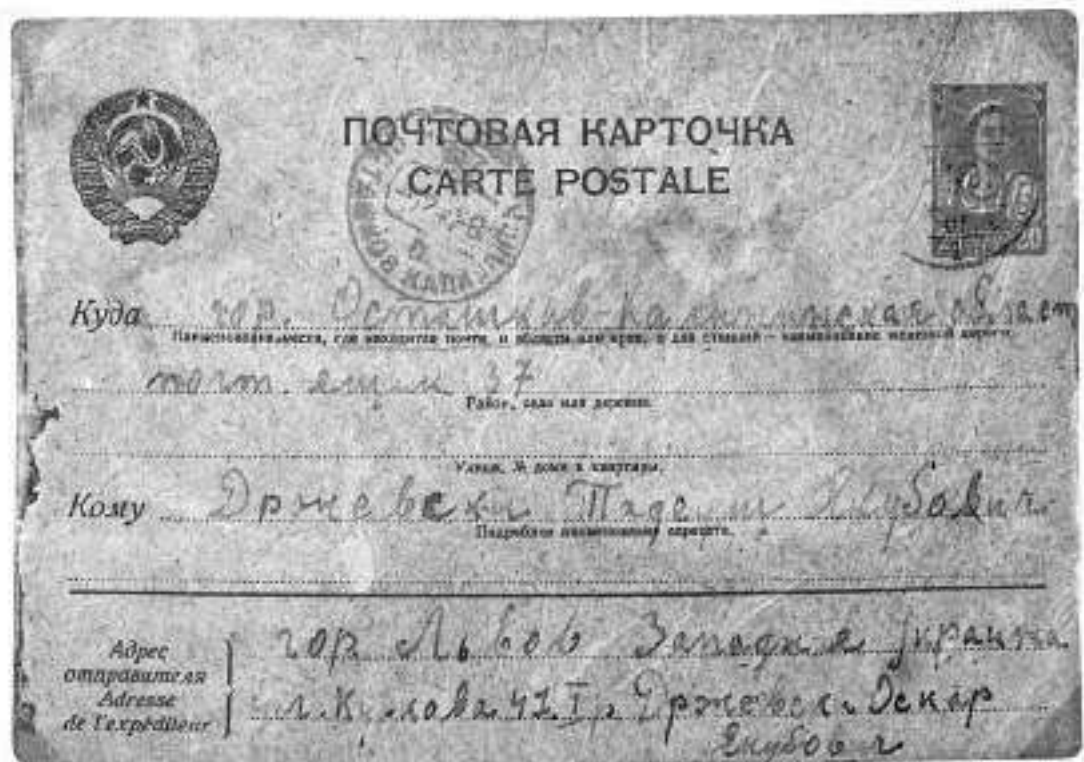 ПОЧТОВАЯ КАРТОЧКА
CARTE POSTALE
Куда гор. Осташков-Калининская област
Наименование места, где находится почта, и области или края, а для станций – наименование железной дороги.
почт. ящик 37
Район, село или деревня.
Улица, № дома и квартиры.
Кому Држевски Тадеуш Якубович
Подробное наименование адресата.
Адрес отправителя
Adresse de l'expéditeur
гор Львов Западная Украина
41 Држевски Оскар
Якубович